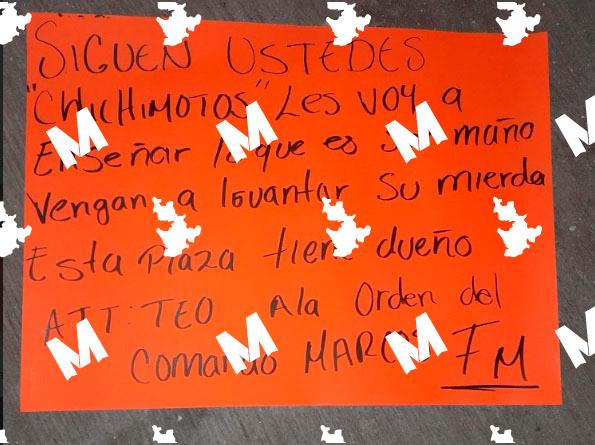 SIGUEN USTEDES
"CHICHIMOTOS" LES VOY a
Enseñar lo que es maño
Vengan a levantar Su mierda
Esta Plaza tiene dueño
ATT: TEO Ala Orden del
Comando MARCOS FM